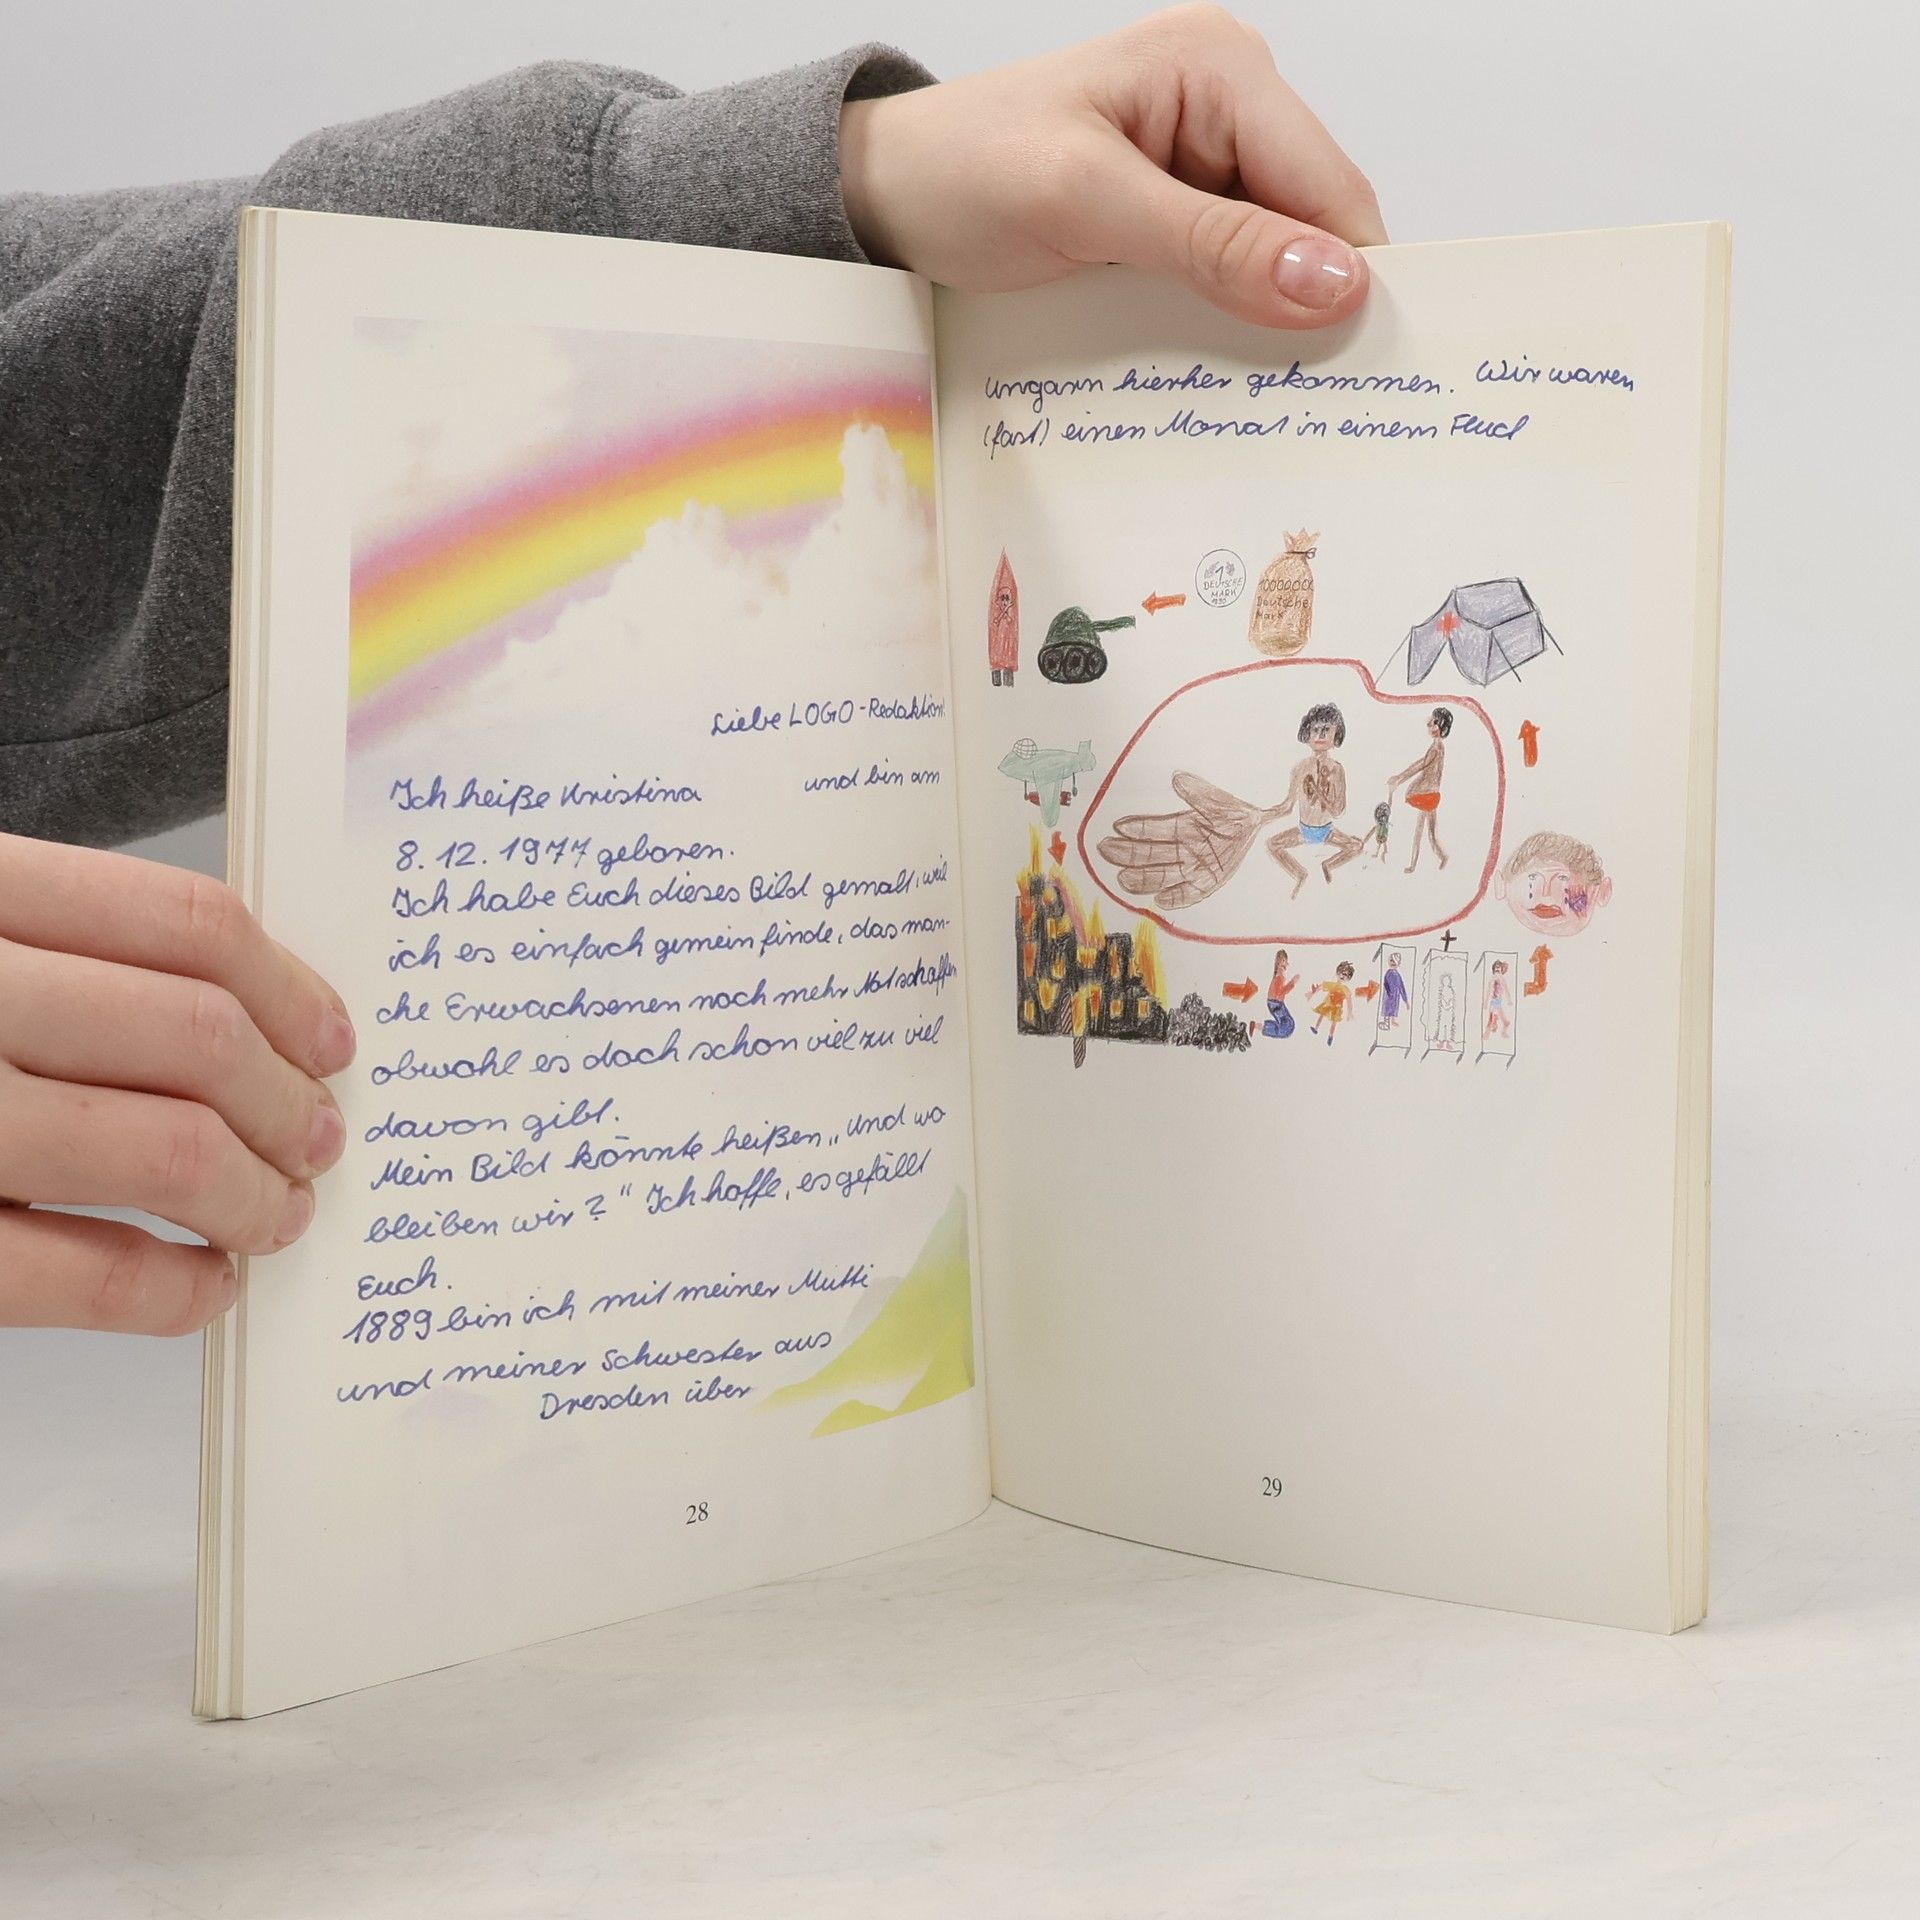 Liebe LOGO-Redaktion!
Ich heiße Kristina und bin am
8.12.1977 geboren.
Ich habe Euch dieses Bild gemalt, weil
ich es einfach gemein finde, das man-
che Erwachsenen noch mehr Not schaffen
obwohl es doch schon viel zu viel
davon gibt.
Mein Bild könnte heißen „Und wo
bleiben wir?" Ich hoffe, es gefällt
Euch.
1889 bin ich mit meiner Mutti
und meiner Schwester aus
Dresden über
28
Ungarn hierher gekommen. Wir waren
(fast) einen Monat in einem Flucht
1
DEUTSCHE
MARK
1990
Deutsche
Mark
29